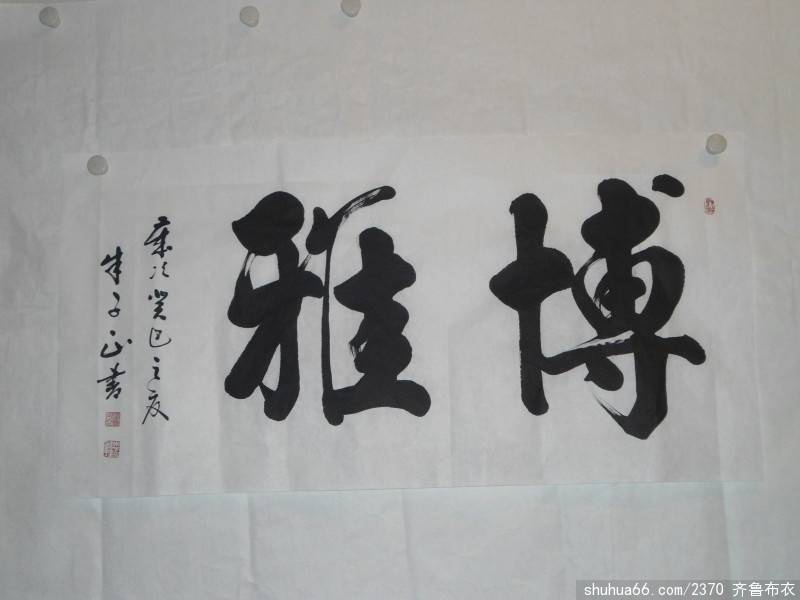 博雅
岁次癸巳之夏
朱子正书
shuhua66.com/2370 齐鲁布衣